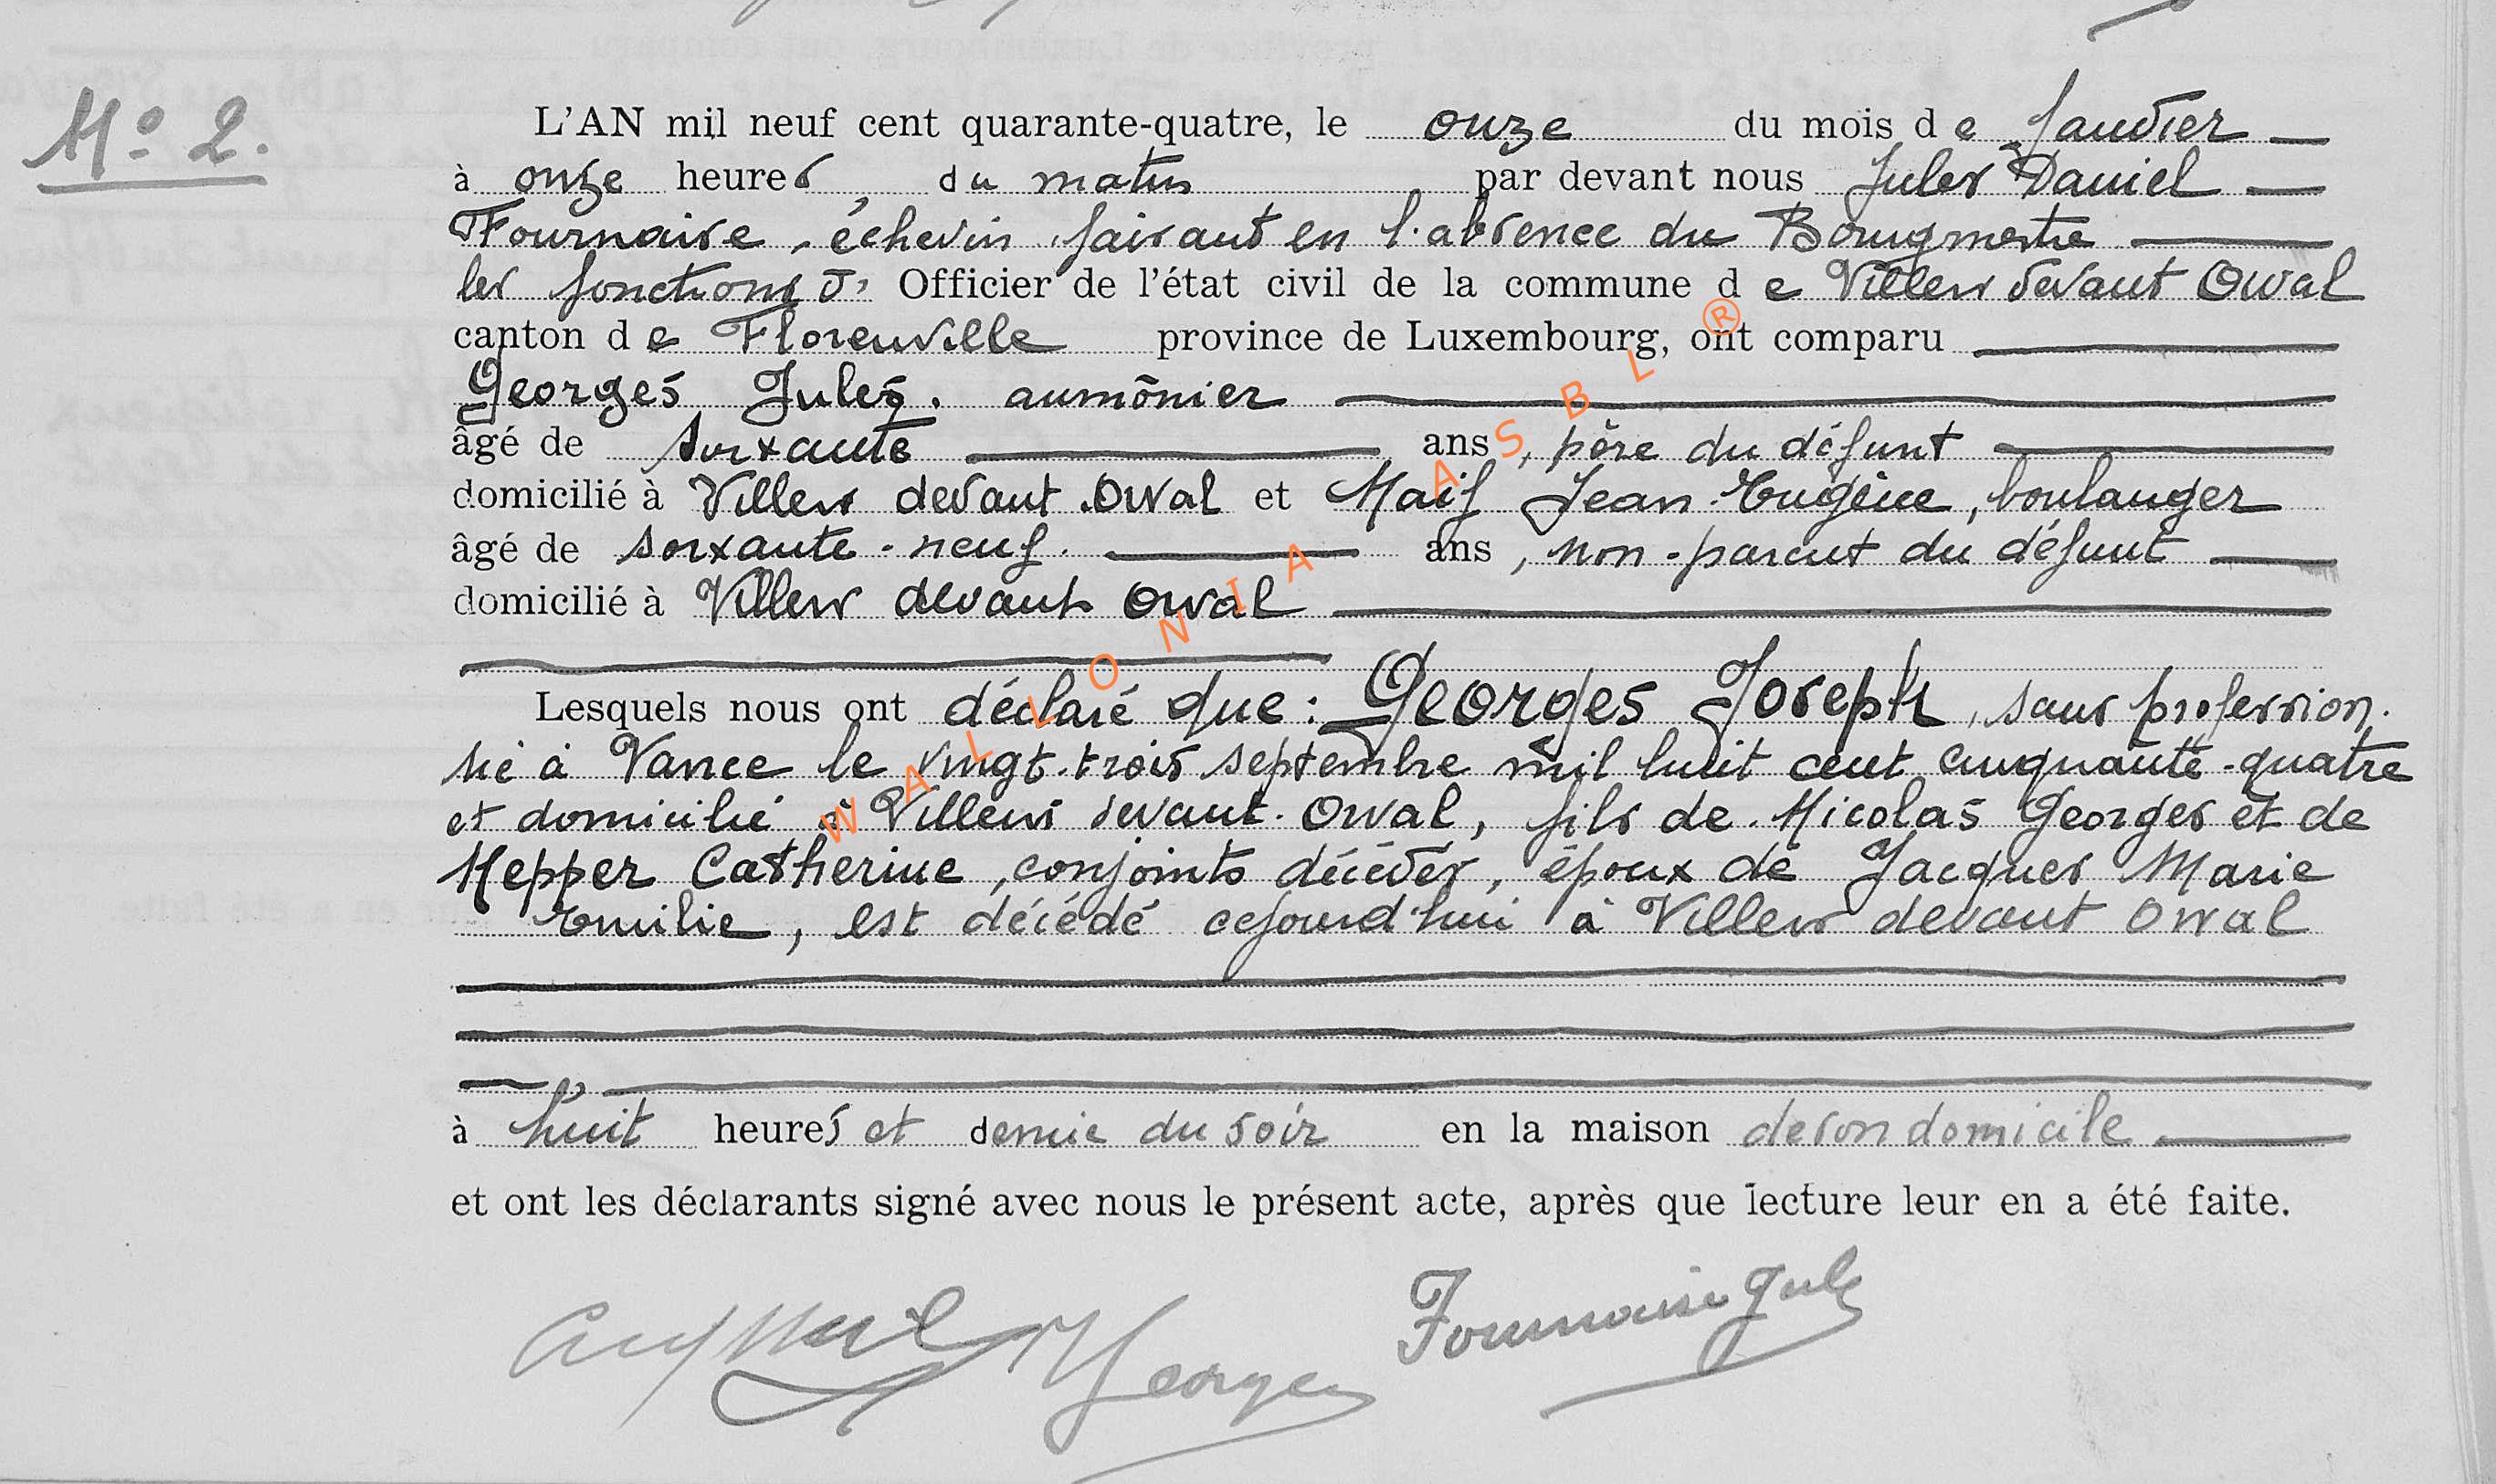 N° 2.
L'AN mil neuf cent quarante-quatre, le onze du mois de Janvier
à onze heures, du matin par devant nous Jules Daniel
Fournaise, échevin, faisant en l'absence du Bourgmestre
les fonctions d' Officier de l'état civil de la commune de Villers devant Orval
canton de Florenville province de Luxembourg, ont comparu
Georges Jules, aumônier
âgé de soixante ans, père du défunt
domicilié à Villers devant Orval et Jean-Eugène, boulanger
âgé de soixante-neuf. ans, non-parent du défunt
domicilié à Villers devant Orval
Lesquels nous ont déclaré que: Georges Joseph, sans profession.
né à Vance le vingt-trois septembre mil huit cent cinquante-quatre
et domicilié à Villers devant Orval, fils de Nicolas Georges et de
Nepper Catherine, conjoints décédés, époux de Jacques Marie
Emilie, est décédé cejourd'hui à Villers devant Orval
à huit heures et demie du soir en la maison de son domicile
et ont les déclarants signé avec nous le présent acte, après que lecture leur en a été faite.
Georges Fournaise Jules
WALLONIA ASBL ®